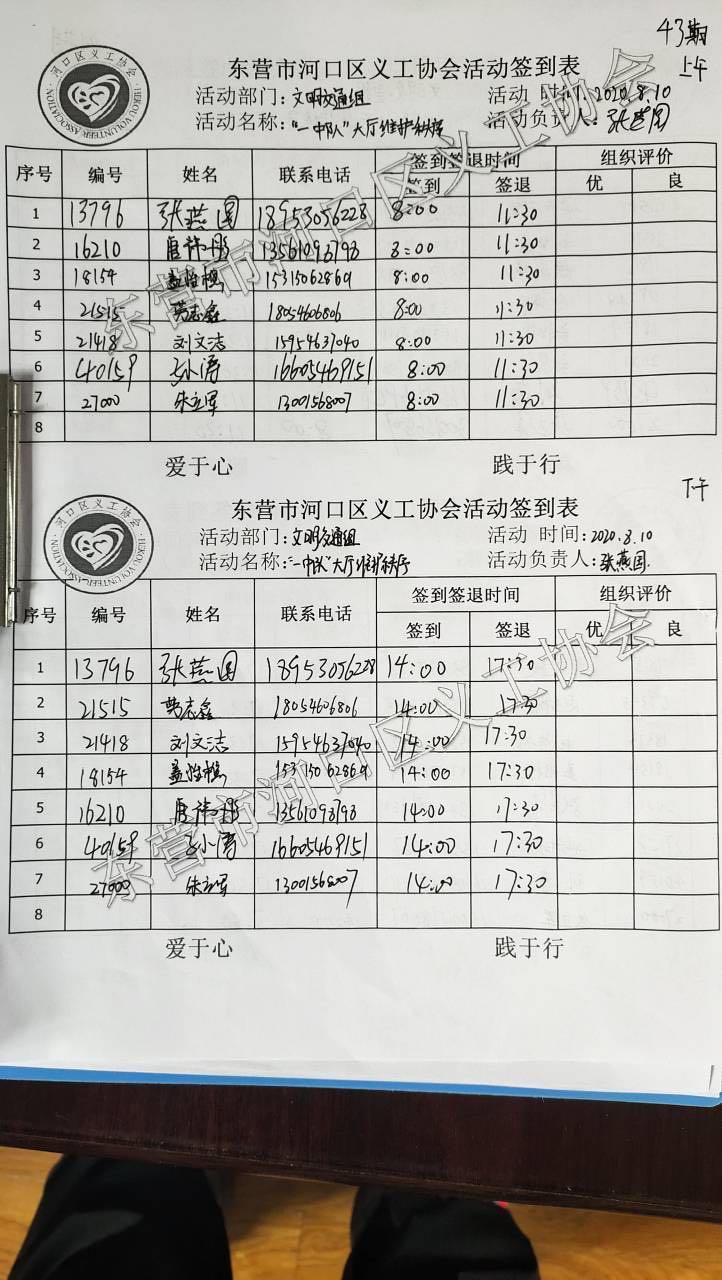 43期
上午
河口区义工协会
HEKOU VOLUNTEER ASSOCIATION
东营市河口区义工协会活动签到表
活动部门:文明交通组 活动 时间:2020.8.10
活动名称:“一中队”大厅维护秩序 活动负责人:张燕国
序号 编号 姓名 联系电话 签到签退时间 组织评价
签到 签退 优 良
1 13796 张燕国 18953056228 8:00 11:30
2 16210 13561098798 8:00 11:30
3 18154 15315062869 8:00 11:30
4 21515 志鑫 18054606806 8:00 11:30
5 21418 刘文志 15954637040 8:00 11:30
6 40159 小涛 16605469151 8:00 11:30
7 27000 朱立军 13001568007 8:00 11:30
8
爱于心 践于行
东营市河口区义工协会
下午
河口区义工协会
HEKOU VOLUNTEER ASSOCIATION
东营市河口区义工协会活动签到表
活动部门:文明交通组 活动 时间:2020.8.10
活动名称:“一中队”大厅维护秩序 活动负责人:张燕国
序号 编号 姓名 联系电话 签到签退时间 组织评价
签到 签退 优 良
1 13796 张燕国 18953056228 14:00 17:30
2 21515 志鑫 18054606806 14:00 17:30
3 21418 刘文志 15954637040 14:00 17:30
4 18154 15315062869 14:00 17:30
5 16210 13561098798 14:00 17:30
6 40159 小涛 16605469151 14:00 17:30
7 27000 朱立军 13001568007 14:00 17:30
8
爱于心 践于行
东营市河口区义工协会